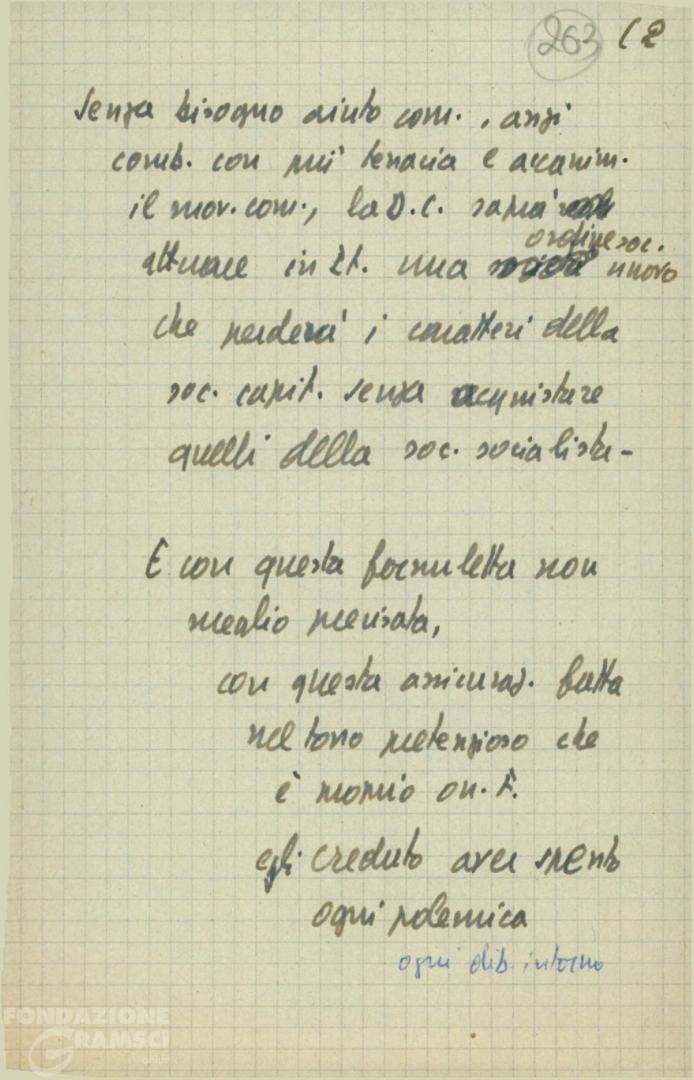 263 (2
senza bisogno aiuto com., anzi
comb. con più tenacia e accanim.
il mov. com., la D.C. saprà
ordine soc.
attuare in It. una nuovo
che perderà i caratteri della
soc. capit. senza acquistare
quelli della soc. socialista -
E con questa formuletta non
meglio precisata,
con questa assicuraz. fatta
nel tono pretenzioso che
è proprio on. F.
egli creduto aver spento
ogni polemica
ogni dib. intorno
FONDAZIONE
GRAMSCI